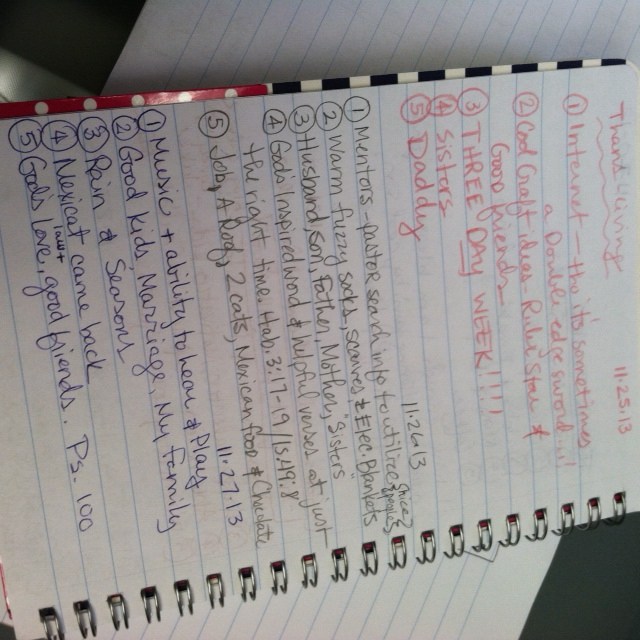 Thanksgiving 11.25.13
① Internet - Ha it's sometimes
a Double edge sword!!
② Good Craft ideas, Rubi Stew &
Good friends
③ THREE Day WEEK!!!!
④ Sisters
⑤ Daddy
11.26.13
① Mentors - putra search info to utilize
② Warm fuzzy socks, scarves & Elec. Blankets
③ Husband, son, Father, Mother, Sisters
④ Gods inspired word & helpful verses at just
the right time. Hab. 3:17-19 / Is. 49:8
⑤ Job, A Roof, 2 cats, Mexican food & Chocolate
11.27.13
① Music & ability to hear & Play
② Good kids, Marriage, My family
③ Rain & Seasons
④ Meanest cat came back
⑤ God's love, good friends. Ps. 100